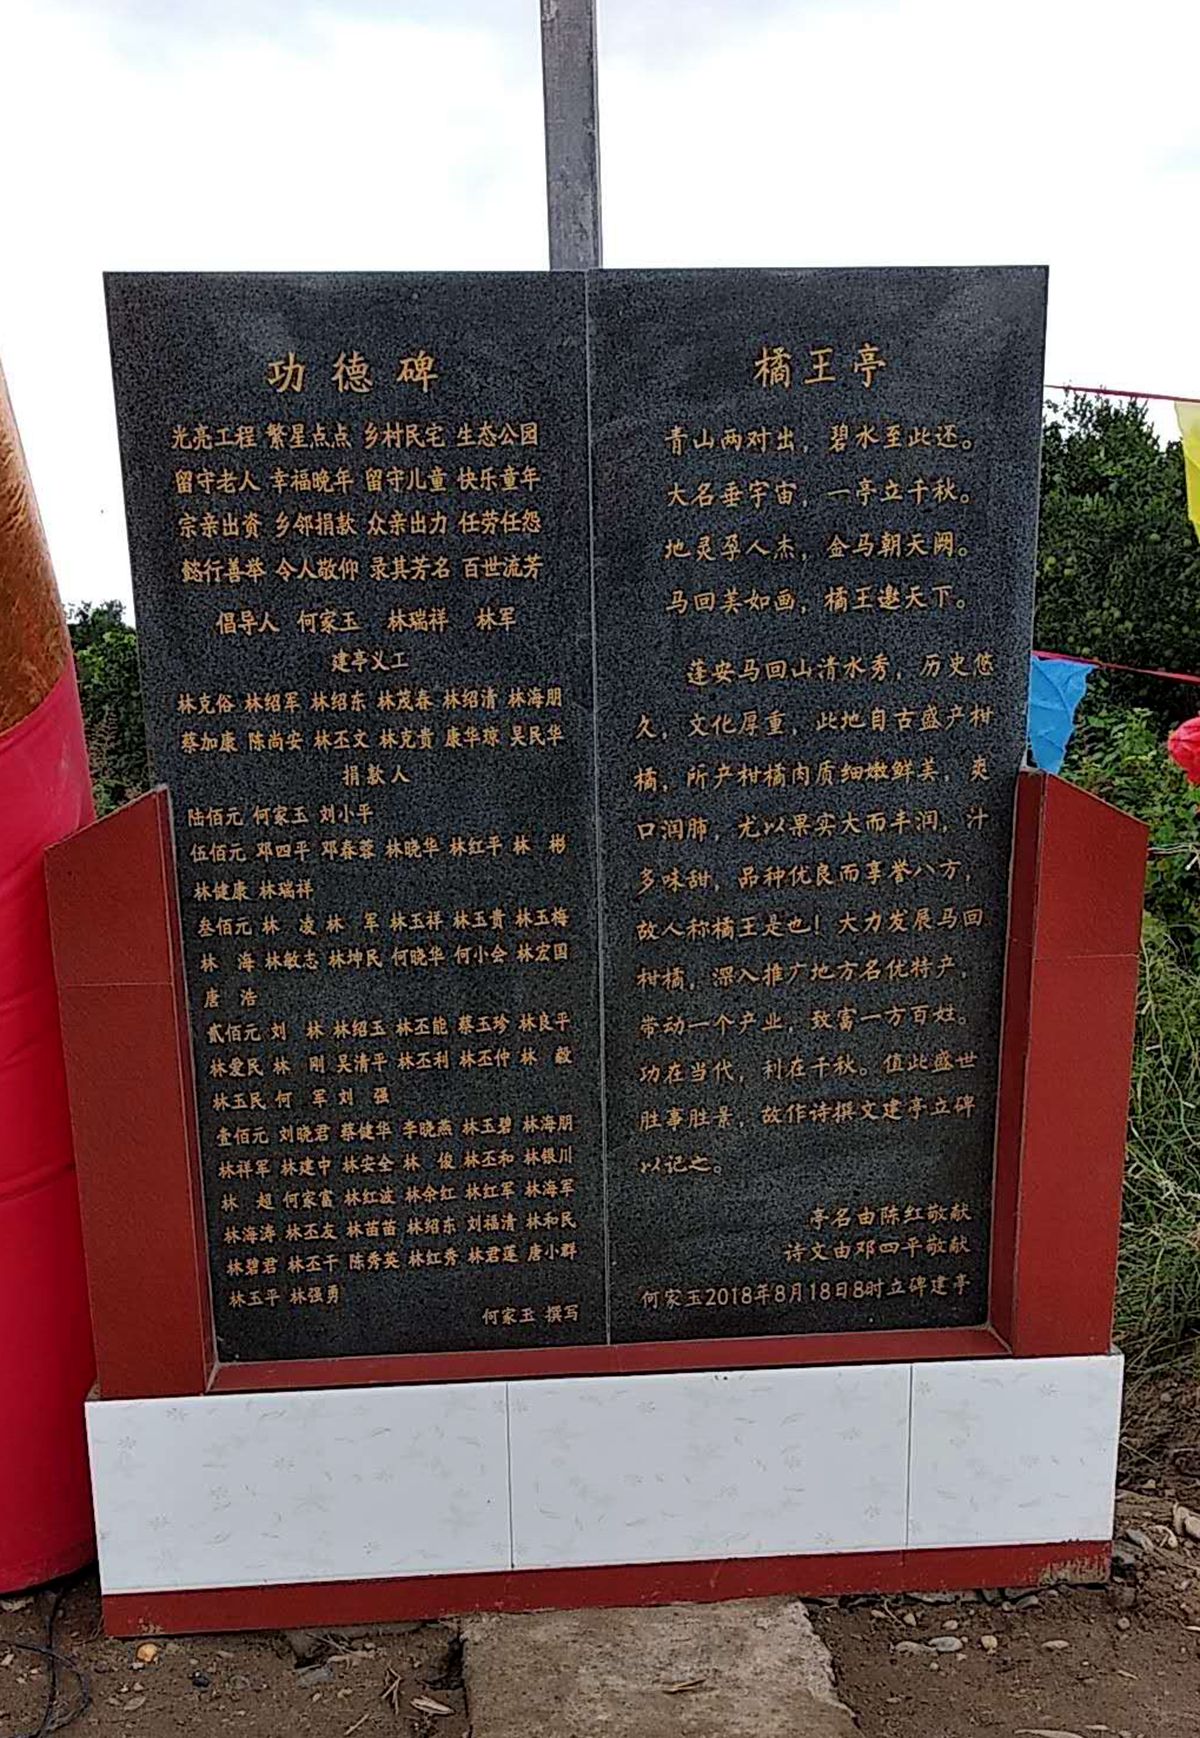 功德碑
光亮工程 繁星点点 乡村民宅 生态公园
留守老人 幸福晚年 留守儿童 快乐童年
宗亲出资 乡邻捐款 众亲出力 任劳任怨
懿行善举 令人敬仰 录其芳名 百世流芳
倡导人 何家玉 林瑞祥 林军
建亭义工
林克俗 林绍军 林绍东 林茂春 林绍清 林海朋
蔡加康 陈尚安 林丕文 林克贵 康华琼 吴民华
捐款人
陆佰元 何家玉 刘小平
伍佰元 邓四平 邓春蓉 林晓华 林红平 林 彬
林健康 林瑞祥
叁佰元 林 凌 林 军 林玉祥 林玉贵 林玉梅
林 海 林敏志 林坤民 何晓华 何小会 林宏国
唐 浩
贰佰元 刘 林 林绍玉 林丕能 蔡玉珍 林良平
林爱民 林 刚 吴清平 林丕利 林丕仲 林 毅
林玉民 何 军 刘 强
壹佰元 刘晓君 蔡健华 李晓燕 林玉碧 林海朋
林祥军 林建中 林安全 林 俊 林丕和 林银川
林 超 何家富 林红波 林余红 林红军 林海军
林海涛 林丕友 林苗苗 林绍东 刘福清 林和民
林碧君 林丕干 陈秀英 林红秀 林君莲 唐小群
林玉平 林强勇
何家玉 撰写
橘王亭
青山两对出，碧水至此还。
大名垂宇宙，一亭立千秋。
地灵孕人杰，金马朝天阙。
马回美如画，橘王邀天下。
蓬安马回山清水秀，历史悠
久，文化厚重，此地自古盛产柑
橘，所产柑橘肉质细嫩鲜美，爽
口润肺，尤以果实大而丰润，汁
多味甜，品种优良而享誉八方，
故人称橘王是也！大力发展马回
柑橘，深入推广地方名优特产，
带动一个产业，致富一方百姓。
功在当代，利在千秋。值此盛世
胜事胜景，故作诗撰文建亭立碑
以记之。
亭名由陈红敬献
诗文由邓四平敬献
何家玉2018年8月18日8时立碑建亭